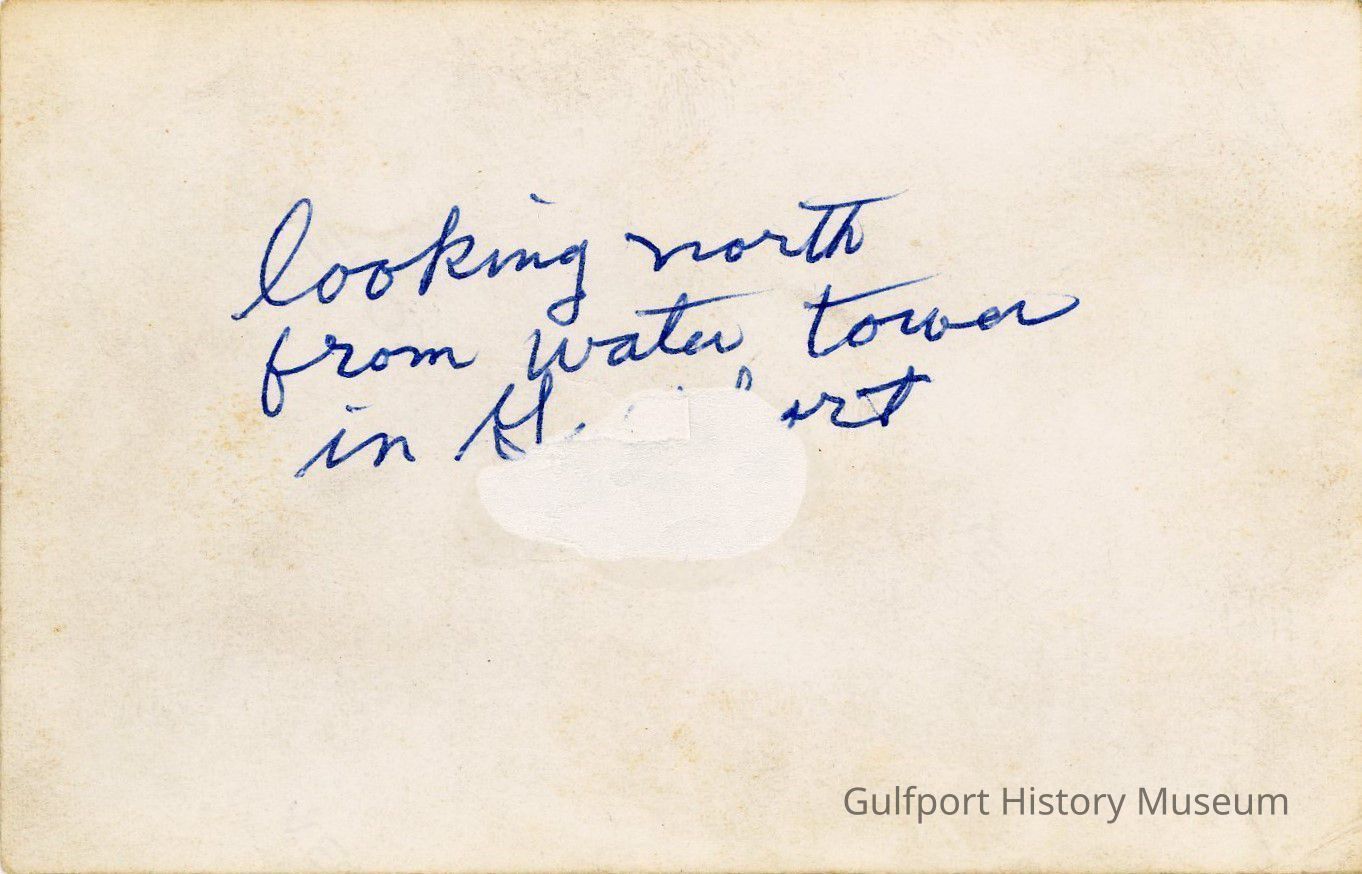 looking north
from water tower
in
Gulfport History Museum